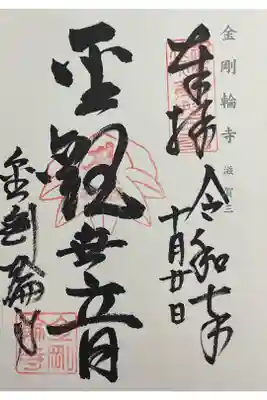 金剛輪寺 滋賀三
奉拝
令和七年
十月廿日
聖觀世音
金剛輪寺
金剛
輪寺